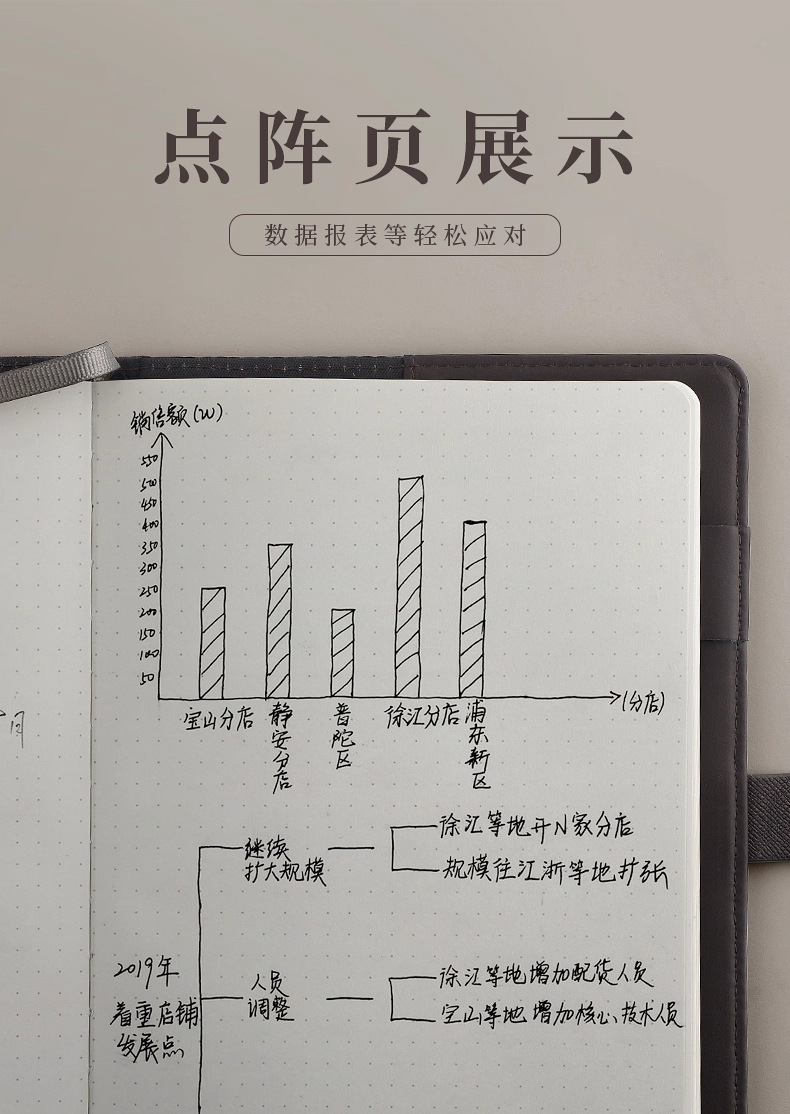 点阵页展示
数据报表等轻松应对
销售额(W)
550
500
450
400
350
300
250
200
150
100
50
宝山分店
静安分店
普陀区
徐汇分店
浦东新区
(分店)
月
徐汇等地开N家分店
继续
扩大规模
规模往江浙等地扩张
2019年
着重店铺
发展点
人员
调整
徐汇等地增加配货人员
宝山等地增加核心技术人员